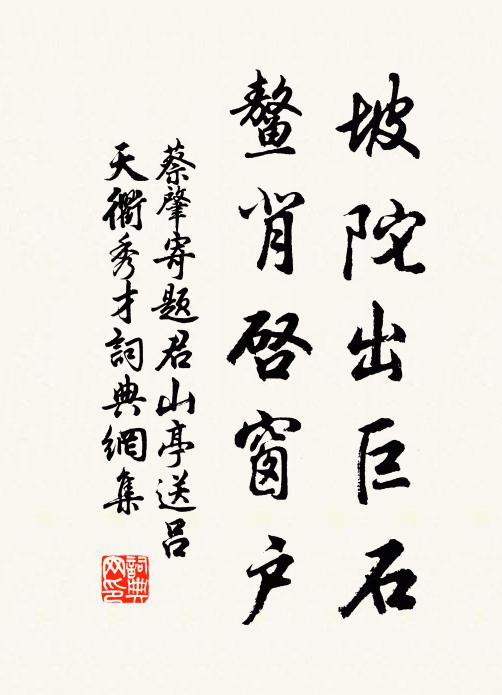 坡陀出巨石
鳌背启窗户
蔡肇寄题君山亭送吕
天衢秀才詞典網集
詞典網印